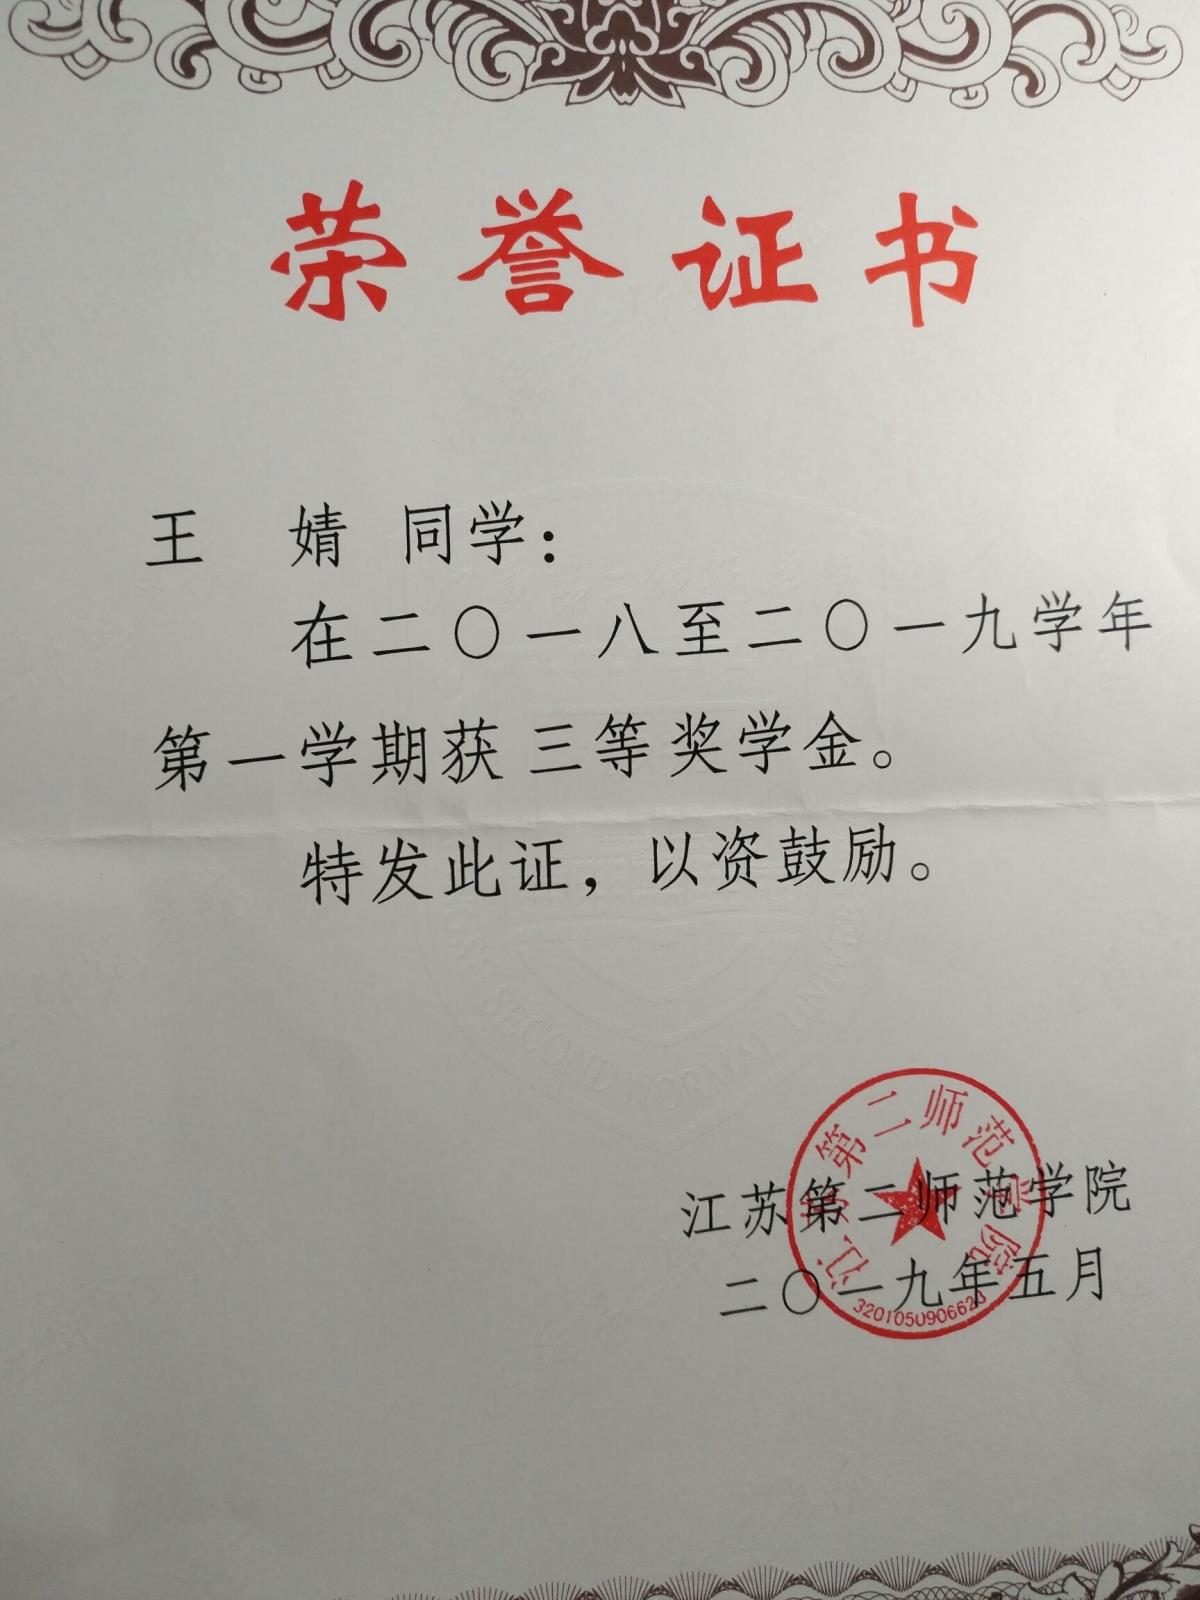 荣誉证书
王 婧 同学：
在二〇一八至二〇一九学年
第一学期获 三等 奖学金。
特发此证，以资鼓励。
江苏第二师范学院
二〇一九年五月
江苏第二师范学院
SECOND NORMAL